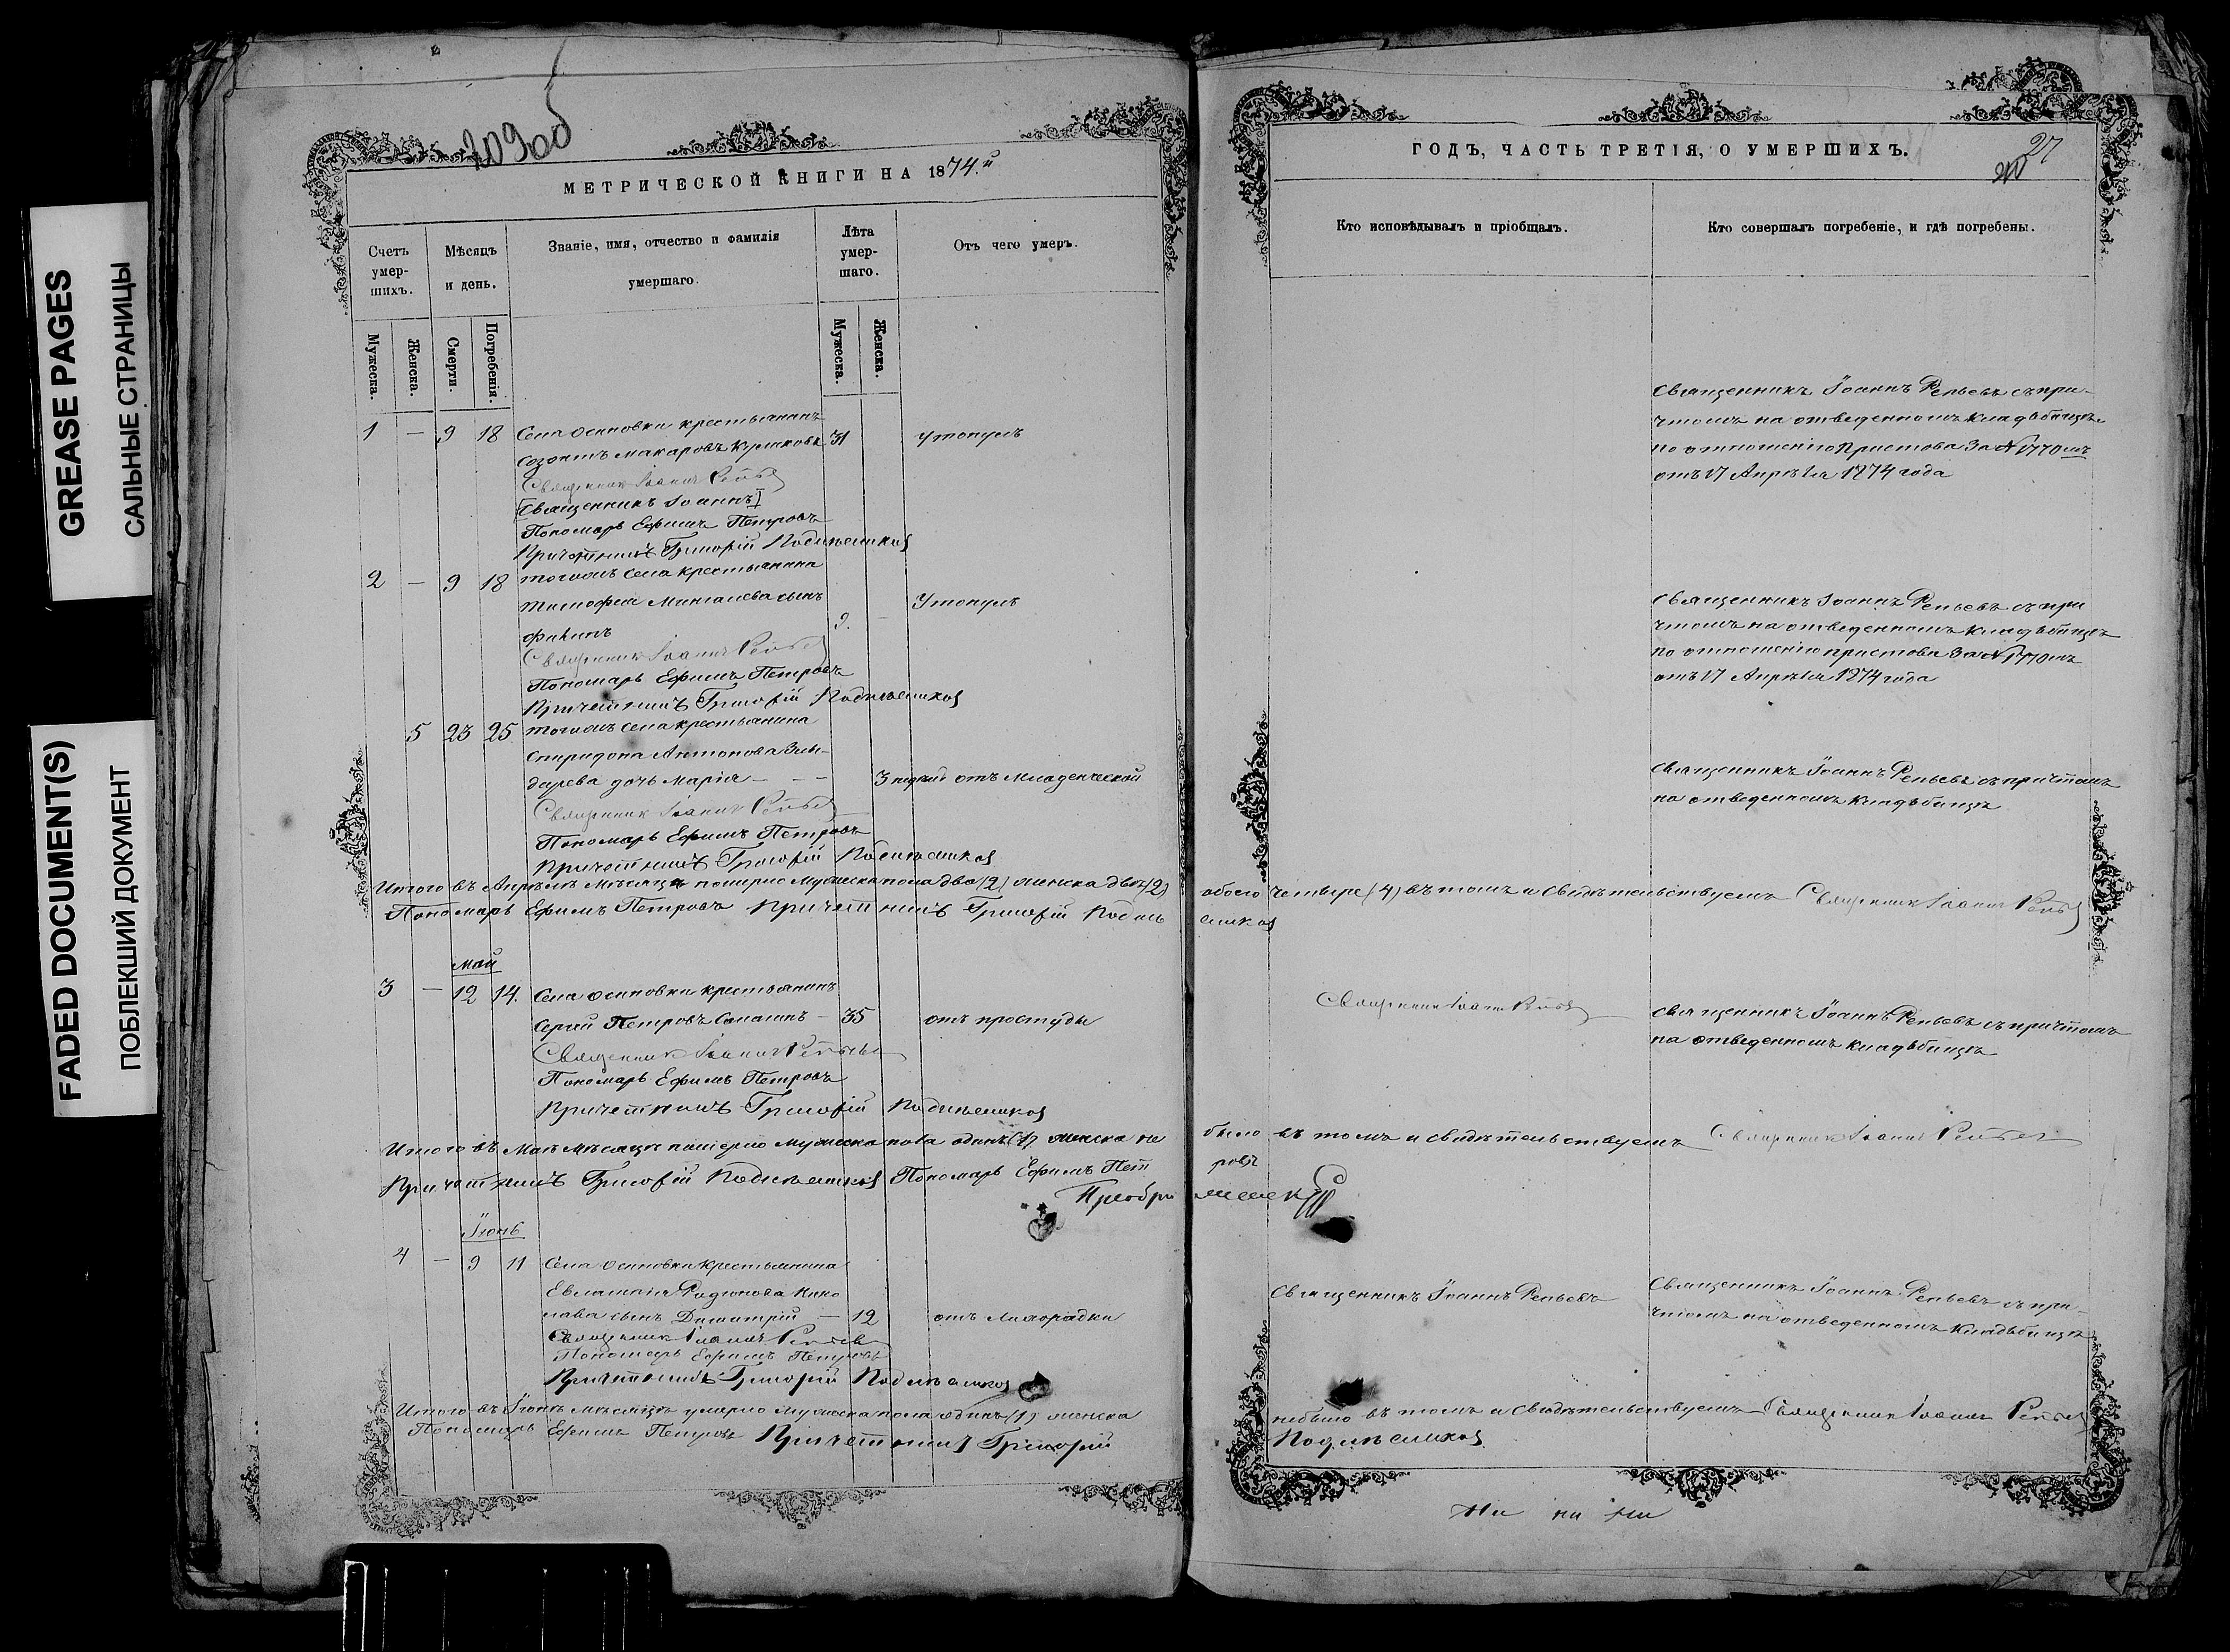 GREASE PAGES
САЛЬНЫЕ СТРАНИЦЫ
FADED DOCUMENT(S)
ПОБЛЕКШИЙ ДОКУМЕНТ
209об
МЕТРИЧЕСКОЙ КНИГИ НА 1874.й
Счетъ умер-шихъ.
Мѣсяцъ и день.
Званіе, имя, отчество и фамилія умершаго.
Лѣта умер-шаго.
Отъ чего умеръ.
Мужеска.
Женска.
Смерти.
Погребенія.
Мужеска.
Женска.
1 — 9 18 Села Осиновки крестьянинъ
Созонтъ Макаровъ 31 утонулъ
Священникъ Іоаннъ Репьев
[Священникъ Іоаннъ]
Пономарь Ефимъ Петровъ
Причетникъ Григорій
2 — 9 18 тогожъ села крестьянина
Тимофея сынъ Утонулъ
9. —
Священникъ Іоаннъ Репьев
Пономарь Ефимъ Петровъ
Причетникъ Григорій
5 23 25 тогожъ села крестьянина
Спиридона Антонова
дарева дочь Марія — — 3 недѣли отъ младенческой
Священникъ Іоаннъ Репьев
Пономарь Ефимъ Петровъ
Причетникъ Григорій
Итого въ Апрѣлѣ мѣсяцѣ померло мужеска пола два (2) женска двѣ (2)
Пономарь Ефимъ Петровъ Причетникъ Григорій
май
3 — 12 14. Села Осиновки крестьянинъ
Сергій Петровъ — 35 отъ простуды
Священникъ Іоаннъ Репьевъ
Пономарь Ефимъ Петровъ
Причетникъ Григорій
Итого въ Маѣ мѣсяцѣ померло мужеска пола одинъ (1) женска не
Причетникъ Григорій Пономарь Ефимъ Пет
Іюнь
4 — 9 11 Села Осиновки крестьянина
Евлампія Родіонова Нико
лаева сынъ Димитрій — 12 отъ лихорадки
Священникъ Іоаннъ Репьев
Пономарь Ефимъ Петровъ
Причетникъ Григорій
Итого въ Іюнѣ мѣсяцѣ умерло мужеска пола одинъ (1) женска
Пономарь Ефимъ Петровъ Причетникъ Григорій
ГОДЪ, ЧАСТЬ ТРЕТІЯ, О УМЕРШИХЪ.
27
210
Кто исповѣдывалъ и пріобщалъ.
Кто совершалъ погребеніе, и гдѣ погребены.
Священникъ Іоаннъ Репьевъ съ при-
чтомъ на отведенномъ кладбищѣ
по отношенію Пристава за №
отъ 17 Апрѣля 1874 года
Священникъ Іоаннъ Репьевъ съ при
чтомъ на отведенномъ кладбищѣ
по отношенію пристава за №
отъ 17 Апрѣля 1874 года
Священникъ Іоаннъ Репьевъ съ причтомъ
на отведенномъ кладбищѣ
обоего четыре (4) въ томъ и свидѣтельствуемъ Священникъ Іоаннъ Репьев
Священникъ Іоаннъ Репьев
Священникъ Іоаннъ Репьевъ съ причтомъ
на отведенномъ кладбищѣ
было въ томъ и свидѣтельствуемъ Священникъ Іоаннъ Репьев
ровъ
Священникъ Іоаннъ Репьевъ
Священникъ Іоаннъ Репьевъ съ при-
чтомъ на отведенномъ кладбищѣ
небыло въ томъ и свидѣтельствуемъ Священникъ Іоаннъ Репьев